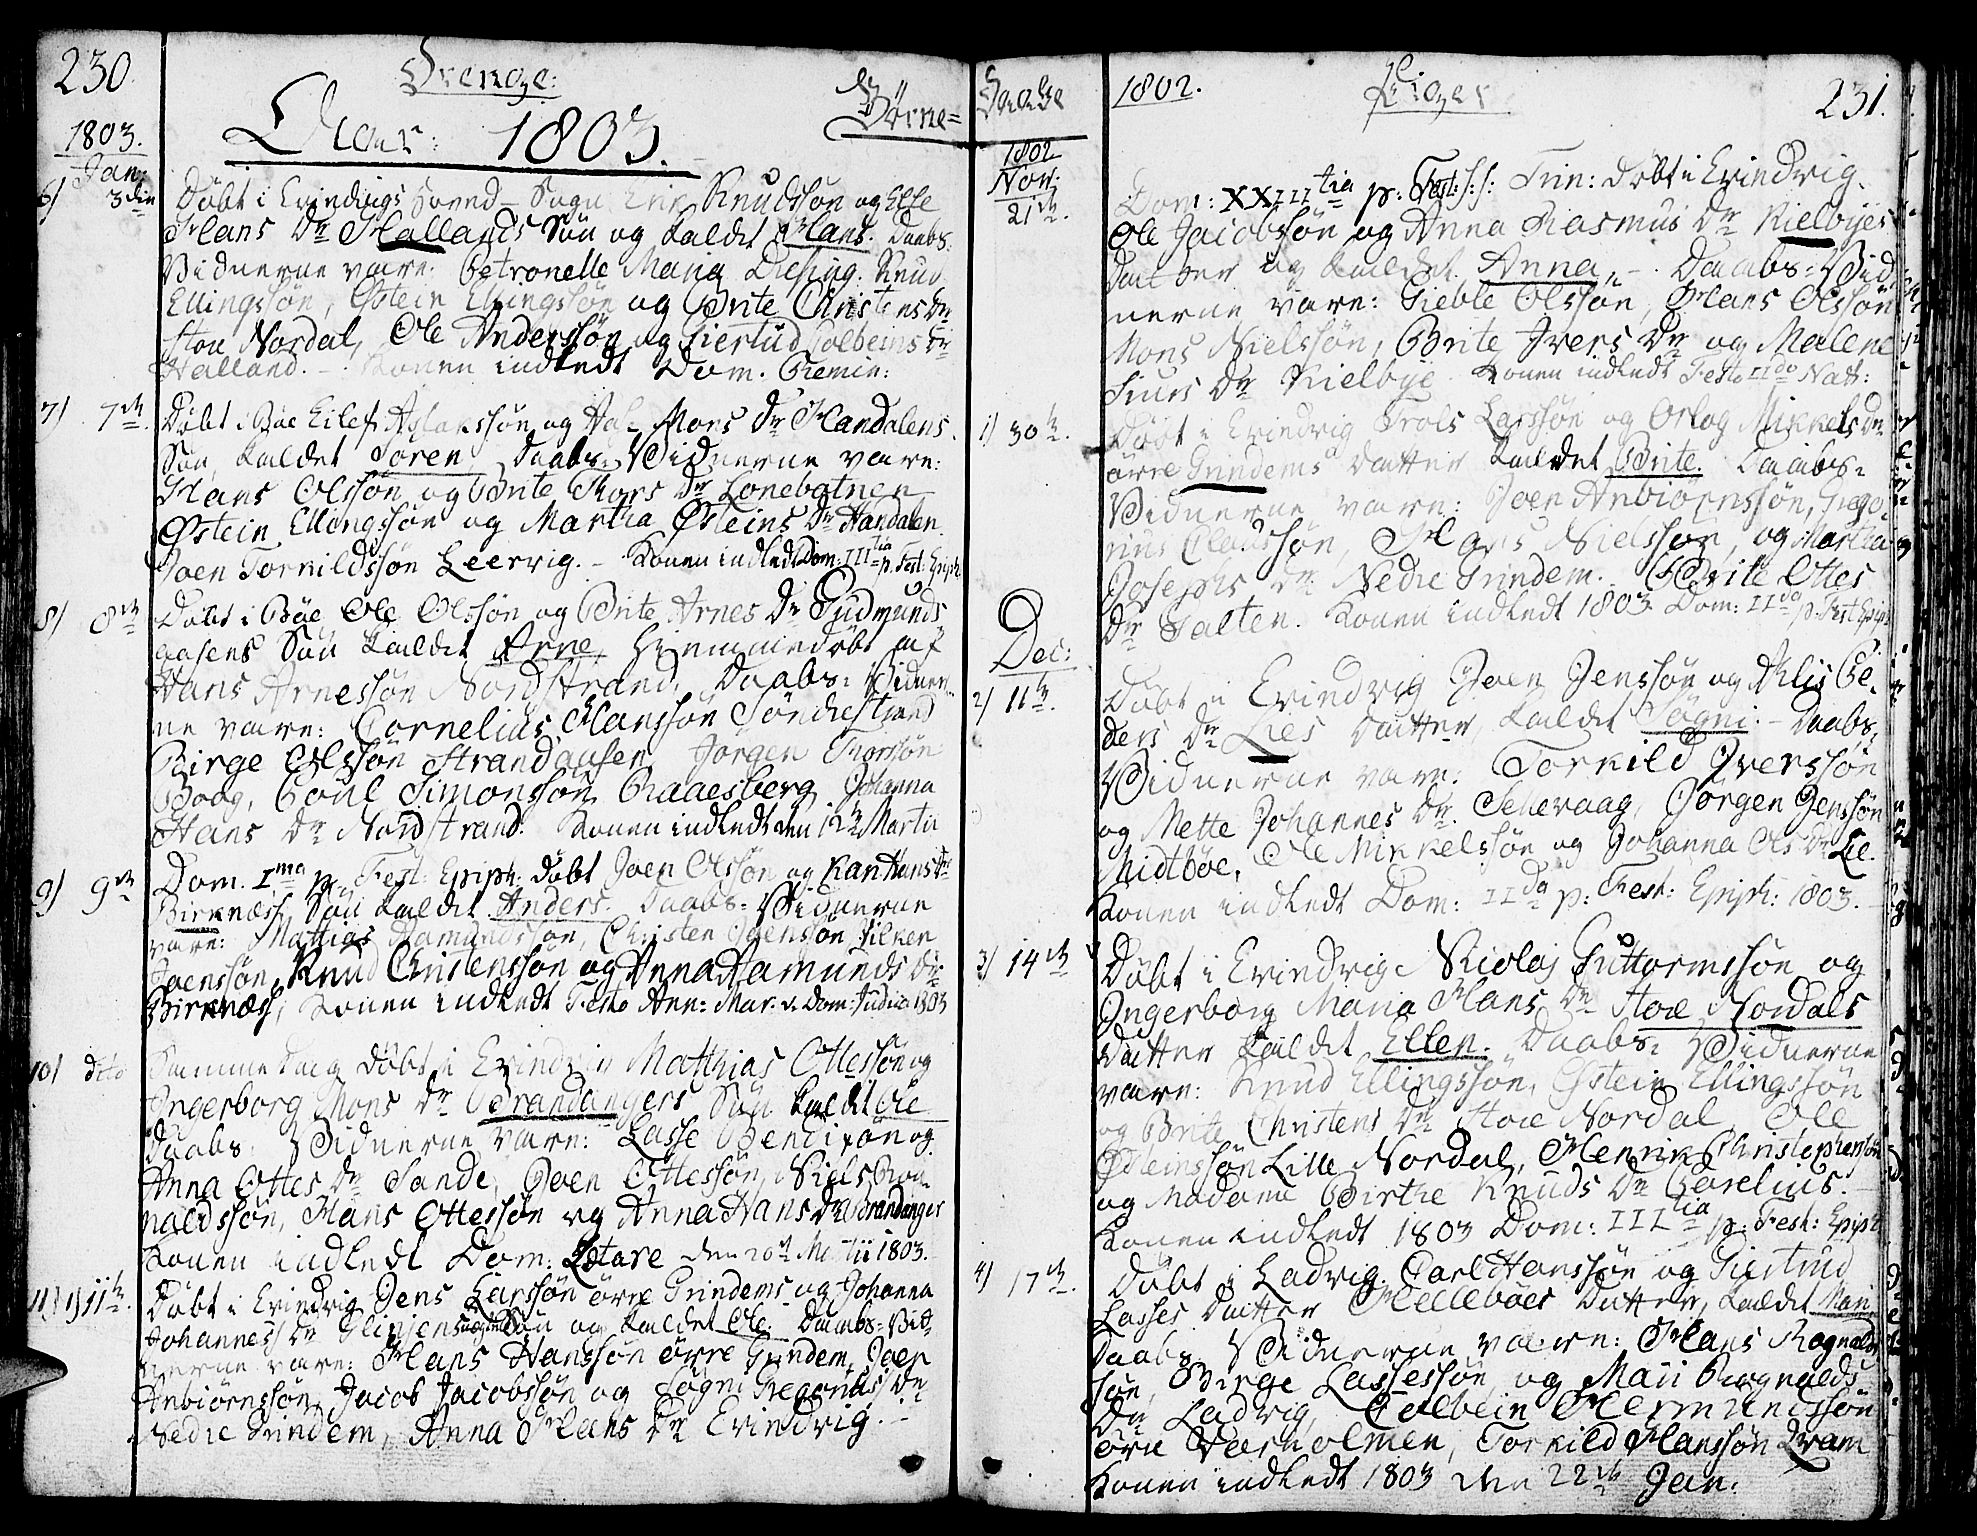 230.
Drenge:
Børne=
Anno: 1803.
1803.
Jan:
6) 3die Døbt i Evindvigs Hoved-Sogn Knudssøn og Else
Hans Dr Hallands Søn og kaldet Hans. Daabs.
Vidnerne vare: Petronelle Maria Knud
Ellingssøn, Østein Ellingssøn og Brite Christens Dr
Stoe Nordal, Ole Anderssøn og Giertud Colbeins Dr
Halland. - Konen indledt Dom. Remin:
7) 7de Døbt i Bøe Eilef Aslakssøn og Mons Dr Handalens
Søn, kaldet Søren Daabs-Vidnerne vare:
Hans Olssøn og Brite Thors Dr Lonebotnen
Østein Ellingssøn og Martha Østeins Dr Handalen
Joen Torkildssøn Leervig. - Konen indledt Dom: IIItia p. Fest: Epiph:
8) 8de Døbt i Bøe Ole Olssøn og Brite Arnes Dr Gudmunds
aasens Søn kaldet Arne, Hiemmedøbt af
Hans Arnessøn Nordstrand. Daabs: Vidner-
ne vare: Cornelius Hanssøn Søndrestrand
Birge Olssøn Strandaasen Jørgen Thorssøn
Boag, Poul Simonssøn Raaesberg Johanna
Hans Dr Nordstrand. Konen indledt den 12te Martii
9) 9de Dom. Ima p. Fest: Epiph: døbt Joen Olssøn og Kari Hans Dr
Birknæss Søn kaldet Anders. Daabs: Vidnerne
vare: Mathias Aamundssøn, Christen Joenssøn
Joenssøn, Knud Christenssøn og Anna Aamunds Dr
Birknæss, Konen indledt Festo Ann: Mar. v. Dom: Judica 1803
10) dito Samme Dag døbt i Evindvig Matthias Ottessøn og
Ingerborg Mons Dr Brandangers Søn kaldet Ole
Daabs: Vidnerne vare: Lasse Bendixøn og
Anna Ottes Dr Sande, Joen Ottessøn, Niels Rog-
naldssøn, Hans Ottessøn og Anna Hans Dr Brandanger
Konen indledt Dom: Lætare den 20de Martii 1803.
11) 11te. Døbt i Evindvig Jens Larssøn øvre Grindems og Johanna
Johanness Dr Søn og kaldet Ole. Daabs-Vid-
nerne vare: Hans Hanssøn øvre Grindem, Joen
Anbiørnssøn, Jacob Jacobssøn og Søgni Gregorius Dr
Nedre Grindem, Anna Hans Dr Evindvig. -
Daabe
1802.
Piger
231.
1802
Nov:
21de. Dom: XXIIItia p. Fest: S:S: Trin: døbt i Evindvig
Ole Jacobssøn og Anna Rasmus Dr Kielbyes
Datter og kaldet Anna, - Daabs-Vid
nerne vare: Gieble Olssøn, Hans Olssøn
Mons Nielssøn, Brite Ivers Dr og Malene
Siurs Dr Kielbye. Konen indledt Festo IIdo Nat:
1) 30te. Døbt i Evindvig Trols Larssøn og Orlog Mikkels Dr
øvre Grindems Datter kaldet Brite. Daabs:
Vidnerne vare: Joen Anbiørnssøn, Grego-
rius Claussøn, Hans Nielssøn, og Martha
Josephs Dr Nedre Grindem. Brite Ottes
Dr Salten. Konen indledt 1803 Dom: IIda p. Fest Epiph
Dec:
2) 11te. Døbt i Evindvig Joen Jenssøn og Alis Pe-
ders Dr Lies Datter, kaldet Søgni. - Daabs,
Vidnerne vare: Torkild Iverssøn
og Mette Johannes Dr Sellevaag, Jørgen Jenssøn
Midtbøe, Ole Mikkelssøn og Johanna Ols Dr Lie.
Konen indledt Dom: IIda p: Fest: Epiph: 1803.
3) 14de Døbt i Evindvig Nicolaj Guttormssøn og
Ingerborg Maria Hans Dr Stoe Nordals
Datter kaldet Ellen. Daabs: Vidnerne
vare: Knud Ellingssøn, Østein Ellingssøn
og Brite Christens Dr Stoe Nordal, Ole
Østeinssøn Lille Nordal, Henrik Christophersøn
og Madame Birthe Knuds Dr Corelius.
Konen indledt 1803 Dom: IIItia p: Fest: Epiph
4) 17de. Døbt i Ladvig. Carl Hanssøn og Giertrud
Lasses Datter Hellebøes Datter, kaldet Mari
Daabs. Vidnerne vare: Hans Rognalds
søn, Birge Lassessøn og Mari Rognalds
Dr Ladvig, Colbein Hermundssøn
øvre Værholmen, Torkild Hanssøn Qvam
Konen indledt 1803 den 22de Jan: